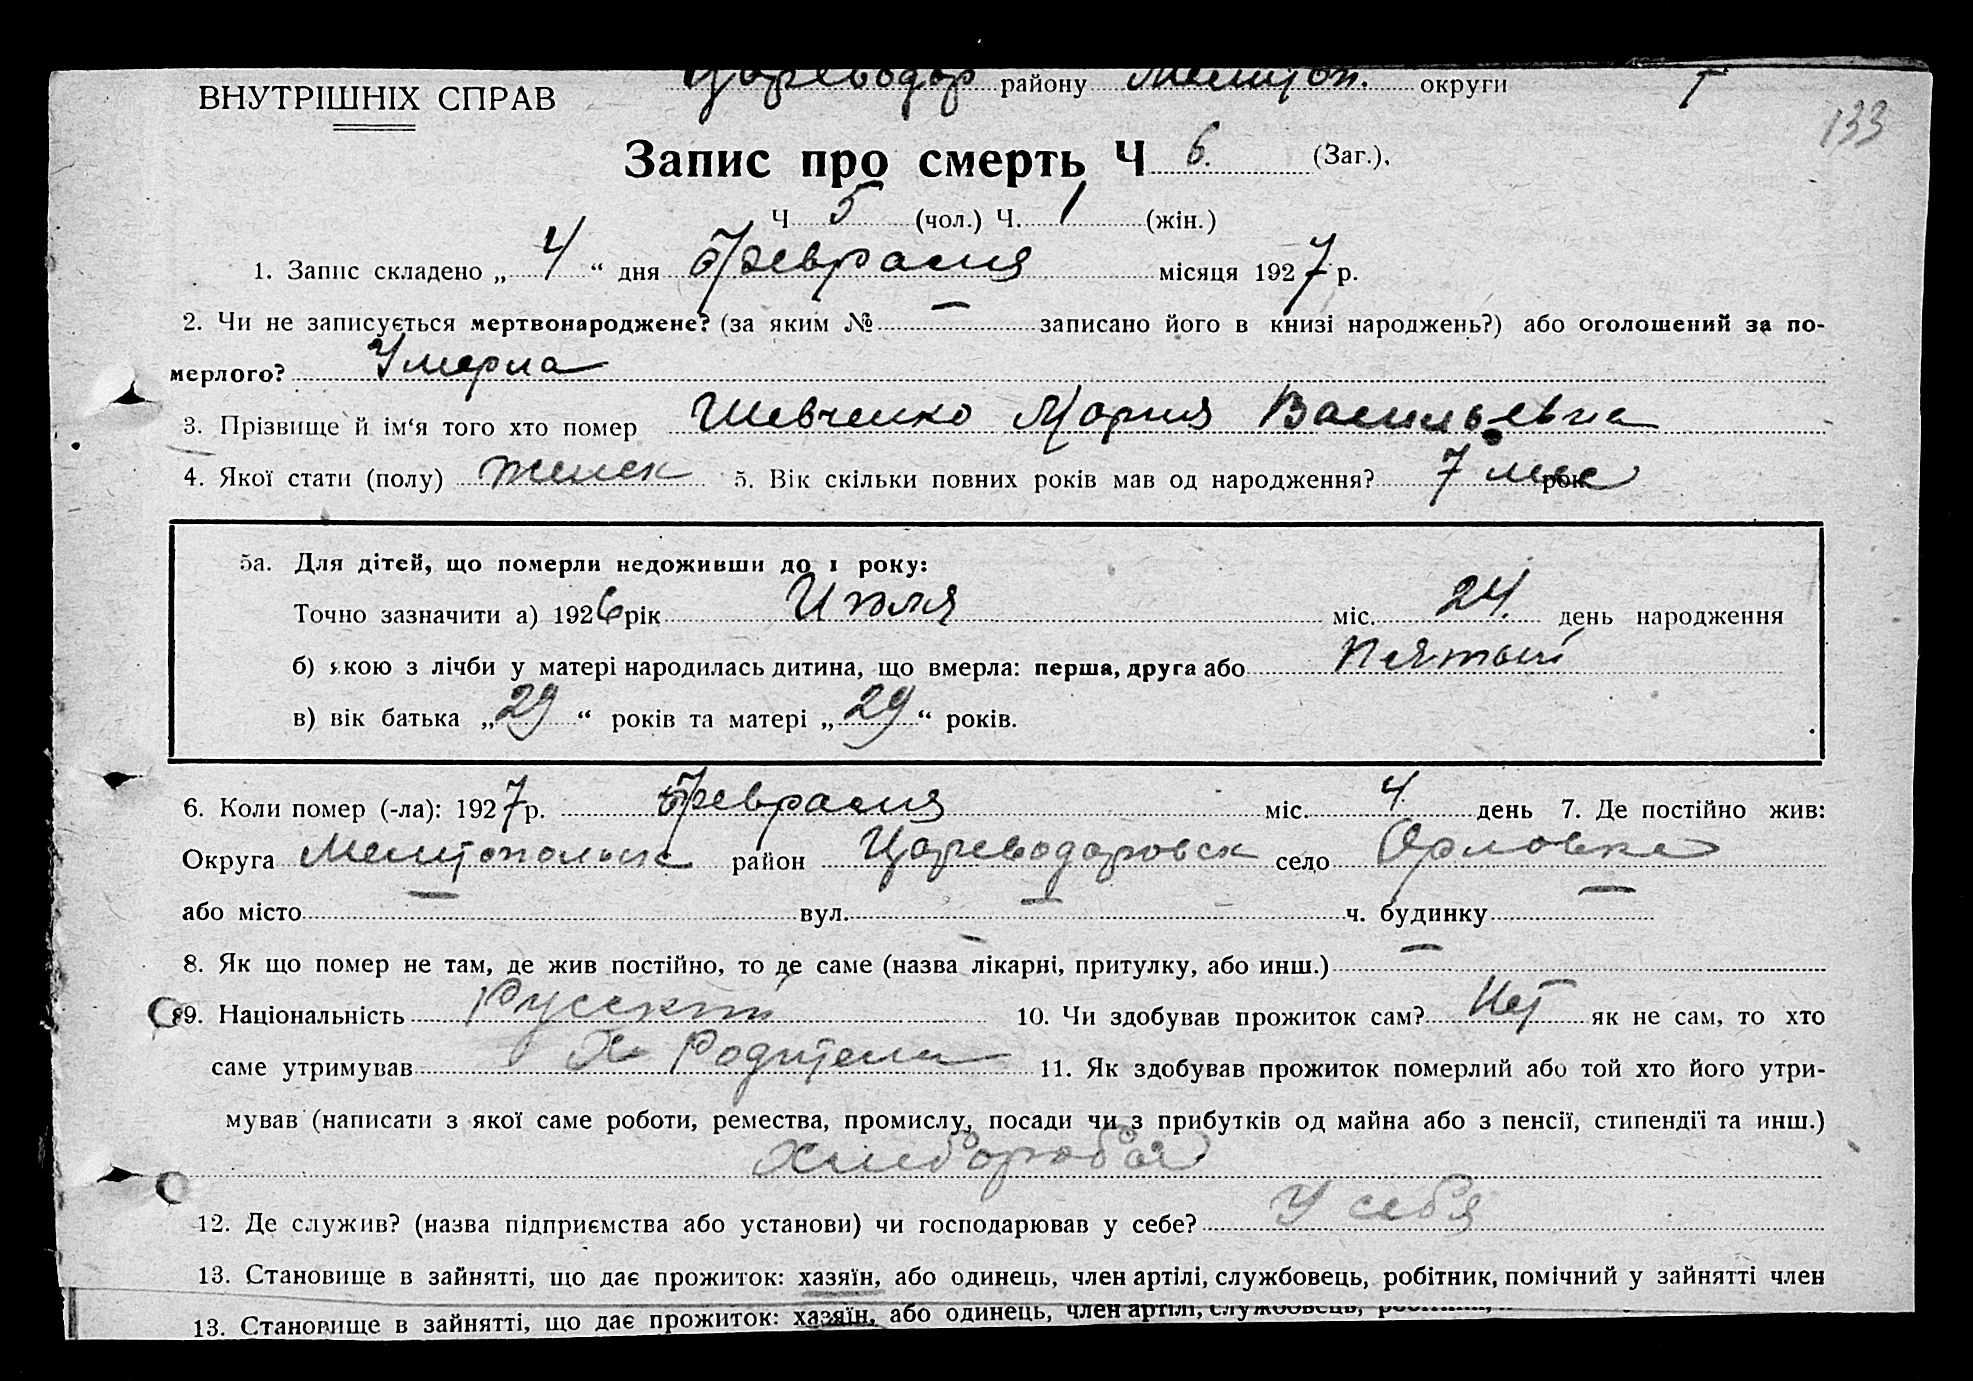 ВНУТРІШНІХ СПРАВ Цареводар району Мелитоп. округи
133
Запис про смерть Ч 6. (Заг.).
Ч 5 (чол.) Ч. 1 (жін.)
1. Запис складено „ 4 “ дня Февраля місяця 1927 р.
2. Чи не записується мертвонароджене? (за яким № — записано його в книзі народжень?) або оголошений за по-
мерлого? Умерла
3. Прізвище й ім‘я того хто помер Шевченко Мария Васильевна
4. Якої стати (полу) женск 5. Вік скільки повних років мав од народження? 7 мес рок
5а. Для дітей, що померли недоживши до 1 року:
Точно зазначити а) 1926 рік Июля міс. 24. день народження
б) якою з лічби у матері народилась дитина, що вмерла: перша, друга або Пятый
в) вік батька „ 29 “ років та матері „ 29 “ років.
6. Коли помер (-ла): 1927 р. Февраля міс. 4. день 7. Де постійно жив:
Округа Мелитопольск район Цареводаровск село Орловка
або місто — вул. — ч. будинку —
8. Як що помер не там, де жив постійно, то де саме (назва лікарні, притулку, або инш.) —
9. Національність Русский 10. Чи здобував прожиток сам? Нет як не сам, то хто
саме утримував Родители 11. Як здобував прожиток померлий або той хто його утри-
мував (написати з якої саме роботи, ремества, промислу, посади чи з прибутків од майна або з пенсії, стипендії та инш.)
12. Де служив? (назва підприємства або установи) чи господарював у себе? У себя
13. Становище в зайнятті, що дає прожиток: хазяїн, або одинець, член артілі, службовець, робітник, помічний у зайнятті член
13. Становище в зайнятті, що дає прожиток: хазяїн, або одинець, член артілі, службовець,